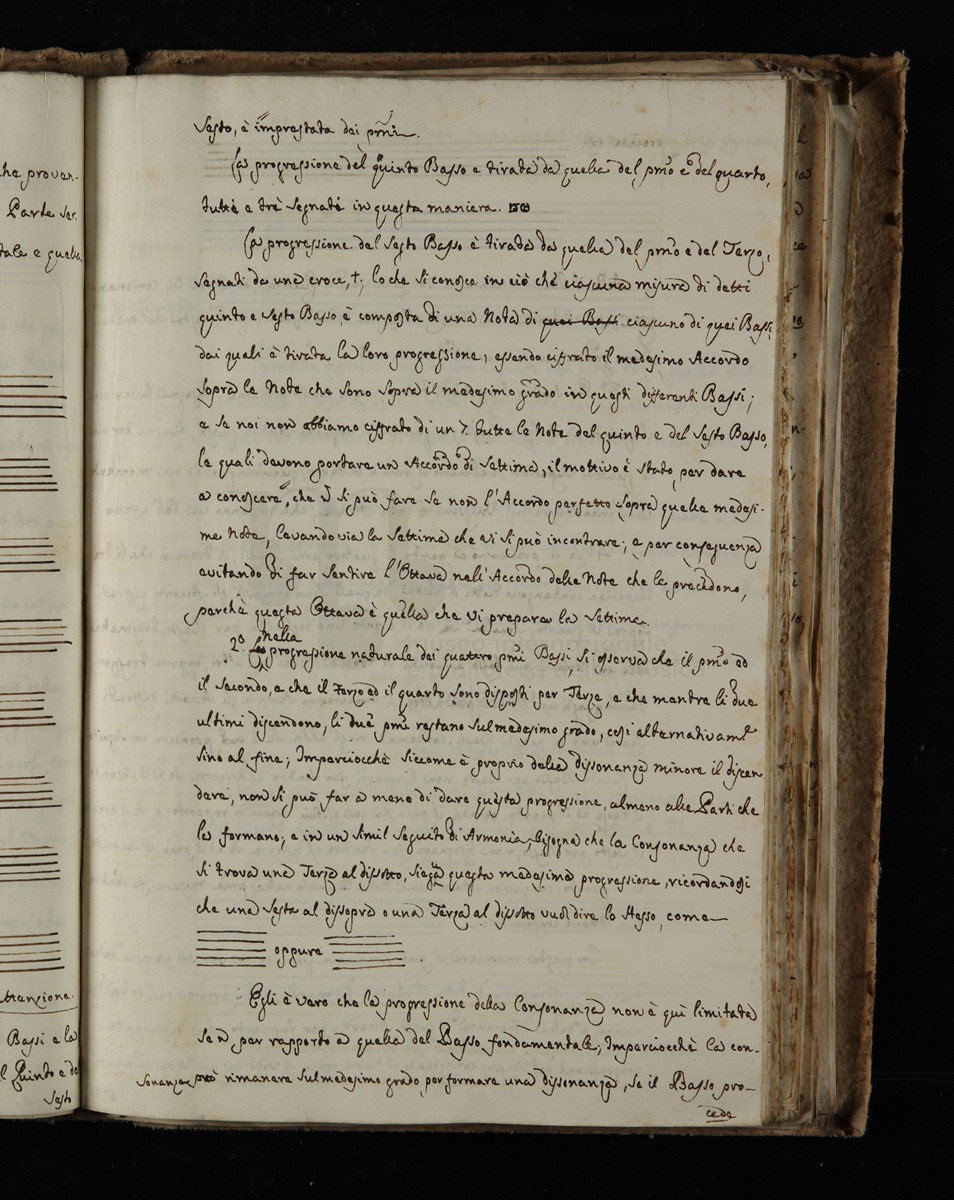 he proven-
Parte ser.
tale e quella
ttenzione.
Bassi e la
l Quinto e de
Sesto
Sesto, è imprestata dei pmi.
La progressione del quinto Basso e tirata da quella del pmo e del quarto,
tutte e trè segnate in questa maniera.
La progressione del Sesto Basso è tirata da quella del pmo e del Terzo,
segnati da una croce, †; lo che si conosce in ciò che ciascuna misura di detti
quinto e Sesto Basso, è composta di una Nota di quei Bassi ciascuno di quei Bassi,
dai quali è tirata la loro progressione, essendo ciffrato il medesimo Accordo
sopra le Note che sono sopra il medesimo grado in questi differenti Bassi;
e se noi non abbiamo ciffrato di un 7. tutte le Note del quinto e del Sesto Basso,
le quali devono portare un Accordo di Settima, il mottivo è stato, per dare
a conoscere, che ñ si può fare se non l'Accordo perfetto sopra quelle medesi-
me Note, levando via la Settima che vi si può incontrare; e per conseguenza
evitando di far sentire l'Ottava nell'Accordo delle Note che le precedono,
perchè questa Ottava è quella che vi prepara la Settima.
2o. Nella progressione naturale dei quattro pmi Bassi, si osserva che il pmo ed
il Secondo, e che il Terzo ed il quarto sono disposti per Terza, e che mentre li due
ultimi discendono, li due pmi restano sul medesimo grado, così alternativamte
sino al fine; Imperciocchè siccome è proprio della dissonanza minore il discen
dere, non si può far a meno di dare questa progressione, almeno alle Parti che
la formano; e in un simil seguito di Armonia, bisogna che la Consonanza che
si trova una Terza al dissotto, siegua questa medesima progressione, ricordandosi
che una Sesta al dissopra o una Terza al dissotto vuol dire lo stesso, come
oppure
Egli è vero che la progressione della Consonanza non è quì limitata
se ñ per rapporto a quella del Basso fondamentale; Imperciocchè la con-
sonanza può rimanere sul medesimo grado per formare una dissonanza, se il Basso pro-
cede